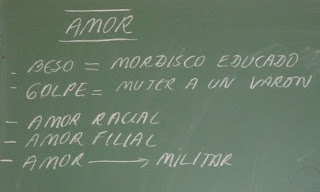 AMOR
- BESO = MORDISCO EDUCADO
- GOLPE = MUTER A UN VARON
- AMOR RACIAL
- AMOR FILIAL
- AMOR → MILITAR